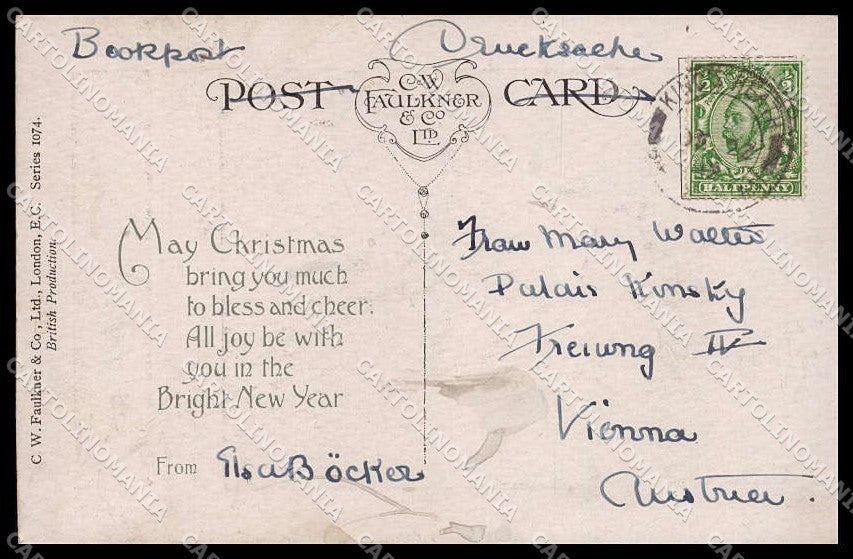 Bookpost
Drucksache
POST CARD
C.W.
FAULKNER
& Co
LTD.
C. W. Faulkner & Co., Ltd., London, E.C. Series 1074.
British Production.
1/2
HALFPENNY
May Christmas
bring you much
to bless and cheer:
All joy be with
you in the
Bright New Year
From Elsa Böcker
Frau Mary Walter
Palais Kinsky
Freiung IV
Vienna
Austria.
CARTOLINOMANIA